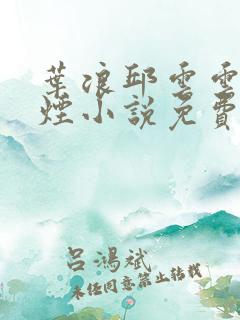 葉浪邱雲雲
煙小說免費
呂鴻斌
未經同意禁止轉載